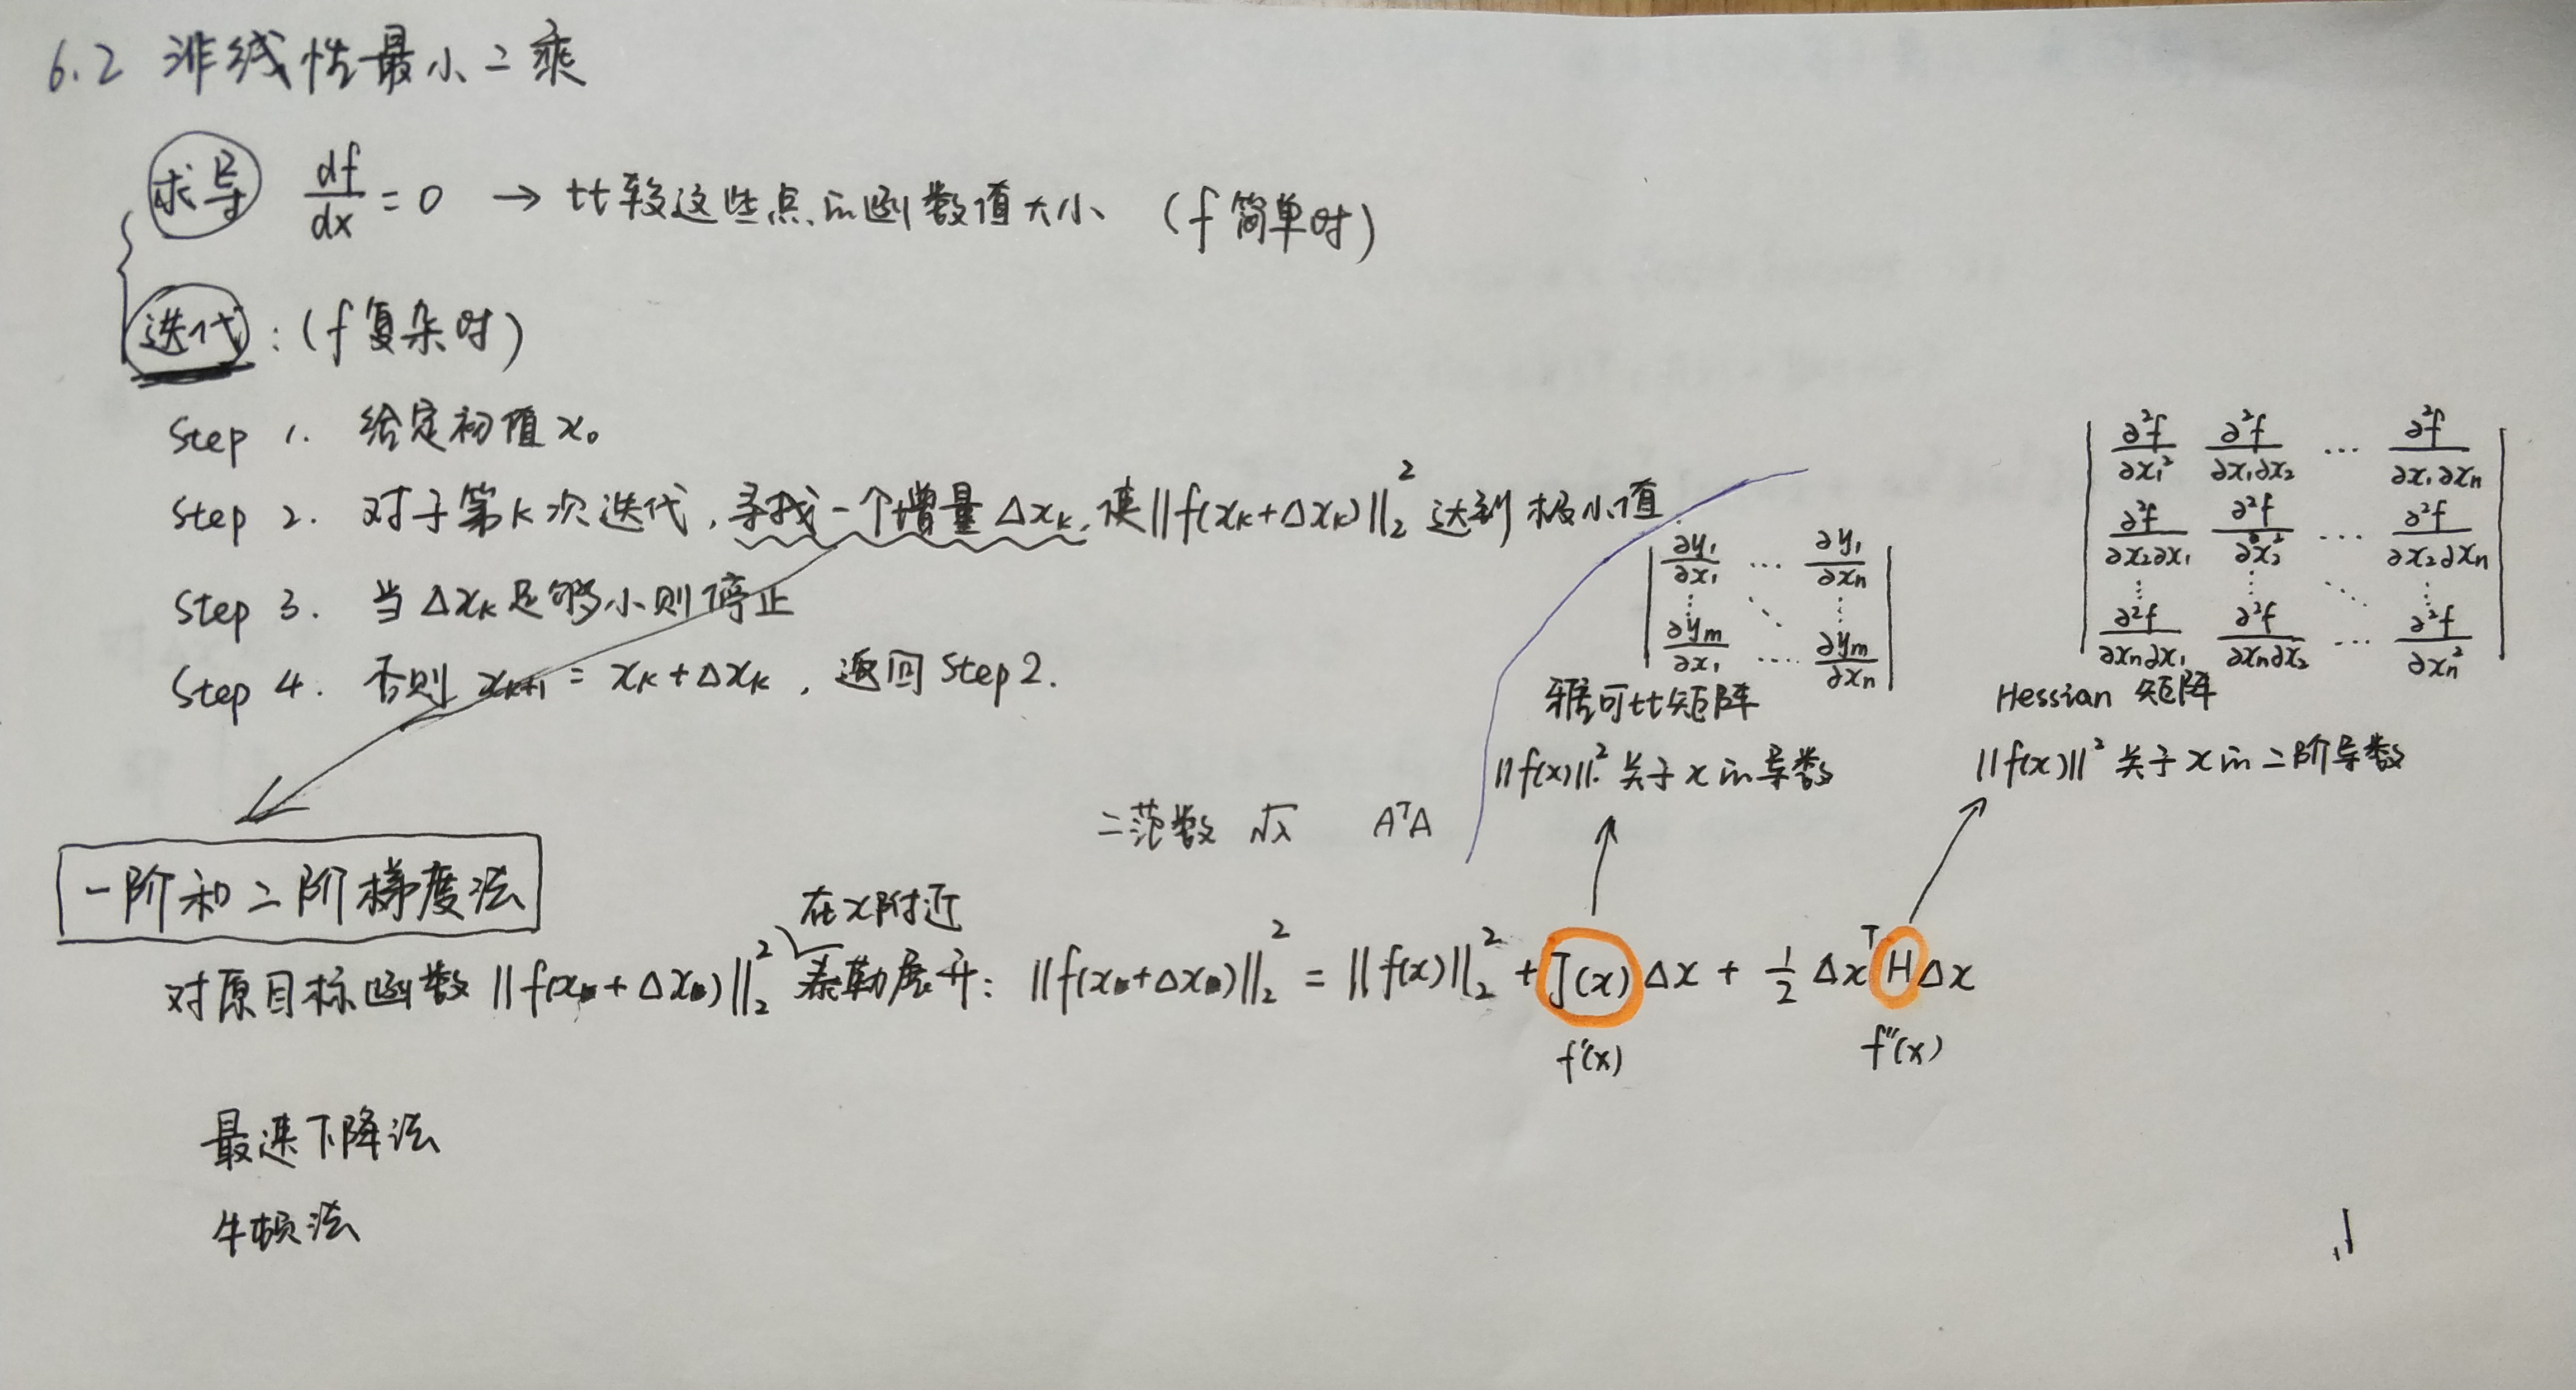 6.2 非线性最小二乘
求导 df/dx = 0 → 比较这些点的函数值大小 (f 简单时)
迭代 : (f 复杂时)
Step 1. 给定初值 x₀
Step 2. 对于第 k 次迭代, 寻找一个增量 Δxₖ, 使 ||f(xₖ+Δxₖ)||₂² 达到极小值.
Step 3. 当 Δxₖ 足够小则停止
Step 4. 否则 xₖ₊₁ = xₖ + Δxₖ , 返回 Step 2.
∂y₁/∂x₁ … ∂y₁/∂xₙ
⋮ ⋱ ⋮
∂yₘ/∂x₁ …. ∂yₘ/∂xₙ
雅可比矩阵
||f(x)||² 关于 x 的导数
∂²f/∂x₁² ∂²f/∂x₁∂x₂ … ∂²f/∂x₁∂xₙ
∂²f/∂x₂∂x₁ ∂²f/∂x₂² … ∂²f/∂x₂∂xₙ
⋮ ⋮ ⋱ ⋮
∂²f/∂xₙ∂x₁ ∂²f/∂xₙ∂x₂ … ∂²f/∂xₙ²
Hessian 矩阵
||f(x)||² 关于 x 的二阶导数
二范数 √λ AᵀA
一阶和二阶梯度法
在 x 附近
对原目标函数 ||f(x+Δx)||₂² 泰勒展开: ||f(x+Δx)||₂² = ||f(x)||₂² + J(x) Δx + ½ Δxᵀ H Δx
f'(x) f''(x)
最速下降法
牛顿法